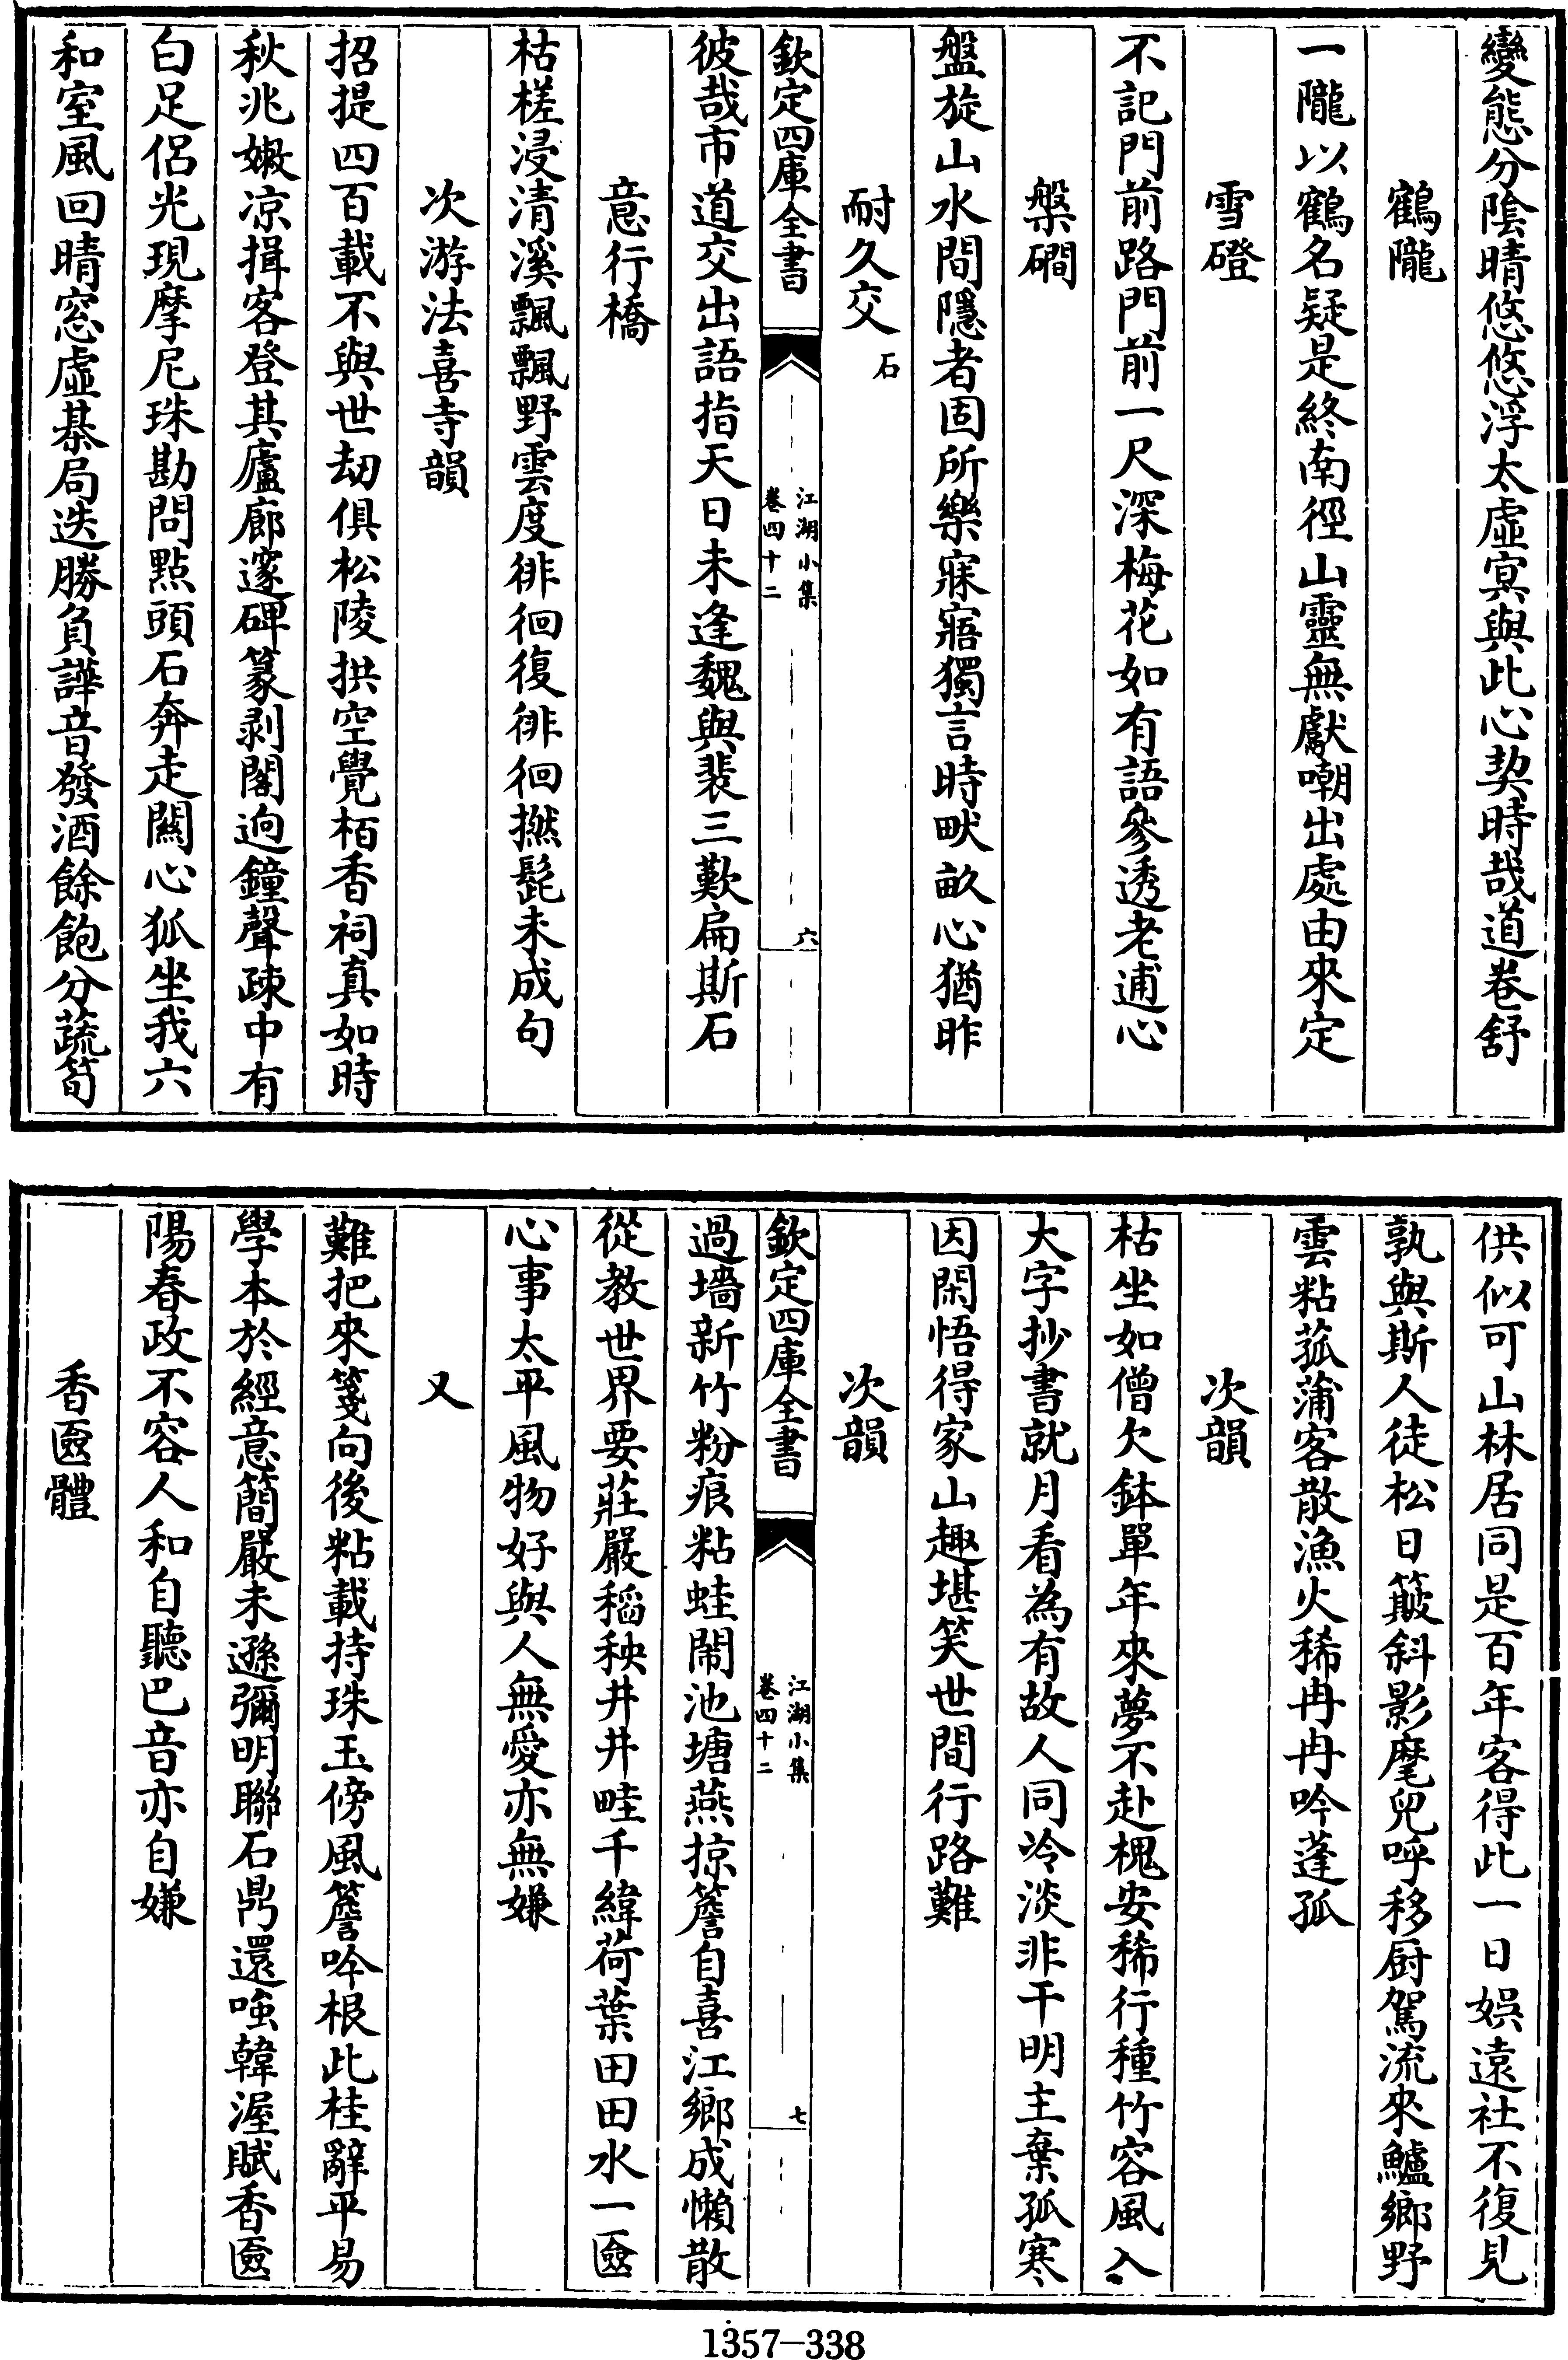 變態分隂晴悠悠浮太虛㝠與此心契時哉道卷舒
鶴隴
一隴以鶴名疑是終南徑山靈無獻嘲出處由來定
雪磴
不記門前路門前一尺深梅花如有語參透老逋心
槃磵
盤旋山水間隱者固所樂寐寤獨言時畎畝心猶昨
耐久交石
欽定四庫全書
江湖小集
卷四十二
六
彼哉市道交出語指天日未逢魏與裴三歎扁斯石
意行橋
枯槎浸清溪飄飄野雲度徘徊復徘徊撚髭未成句
次游法喜寺韻
招提四百載不與世刼俱松陵拱空覺栢香祠真如時
秋兆嫩凉揖客登其廬廊邃碑篆剥閣逈鐘聲疎中有
白足侣光現摩尼珠勘問點頭石奔走闗心狐坐我六
和室風回晴窓虛棊局迭勝負譁音發酒餘飽分蔬筍
供似可山林居同是百年客得此一日娯遠社不復見
孰與斯人徒松日簸斜影麾兒呼移厨駕流來鱸鄉野
雲粘菰蒲客散漁火稀冉冉吟蓬孤
次韻
枯坐如僧欠鉢單年來夢不赴槐安稀行種竹容風入
大字抄書就月看為有故人同冷淡非干明主棄孤寒
因閑悟得家山趣堪笑世間行路難
次韻
欽定四庫全書
江湖小集
卷四十二
七
過墻新竹粉痕粘蛙閙池塘燕掠簷自喜江鄉成懶散
從教世界要莊嚴稻秧井井畦千緯荷葉田田水一匳
心事太平風物好與人無愛亦無嫌
又
難把來箋向後粘載持珠玉傍風簷吟根此桂辭平易
學本於經意簡嚴未遜彌明聯石鼎還嗤韓渥賦香匳
陽春政不容人和自聽巴音亦自嫌
香匳體
1357-338